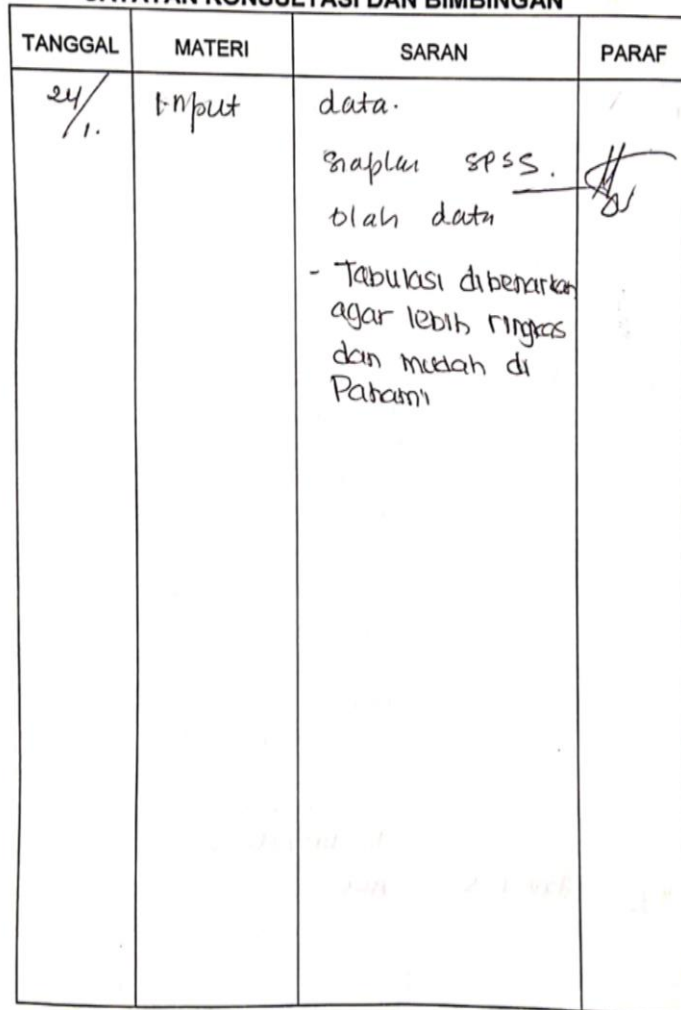 CATATAN KONSULTASI DAN BIMBINGAN
TANGGAL MATERI SARAN PARAF
24/1. Input data.
siapkan SPSS.
olah data
- Tabulasi dibenarkan
agar lebih ringkas
dan mudah di
Pahami